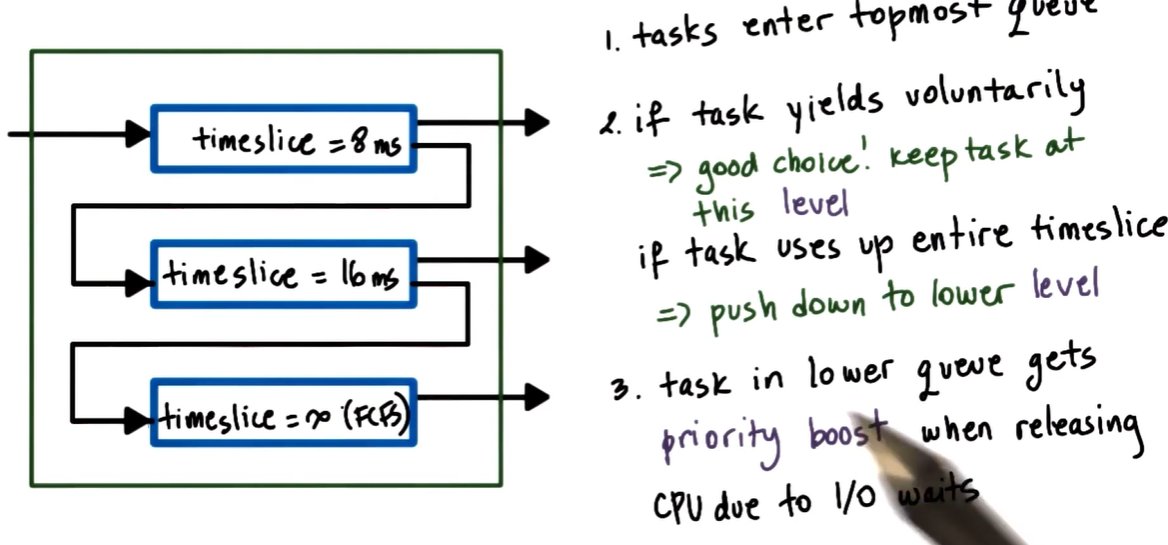 timeslice = 8 ms
timeslice = 16 ms
timeslice = ∞ (FCFS)
1. tasks enter topmost queue
2. if task yields voluntarily
=> good choice! keep task at
this level
if task uses up entire timeslice
=> push down to lower level
3. task in lower queue gets
priority boost when releasing
CPU due to I/O waits